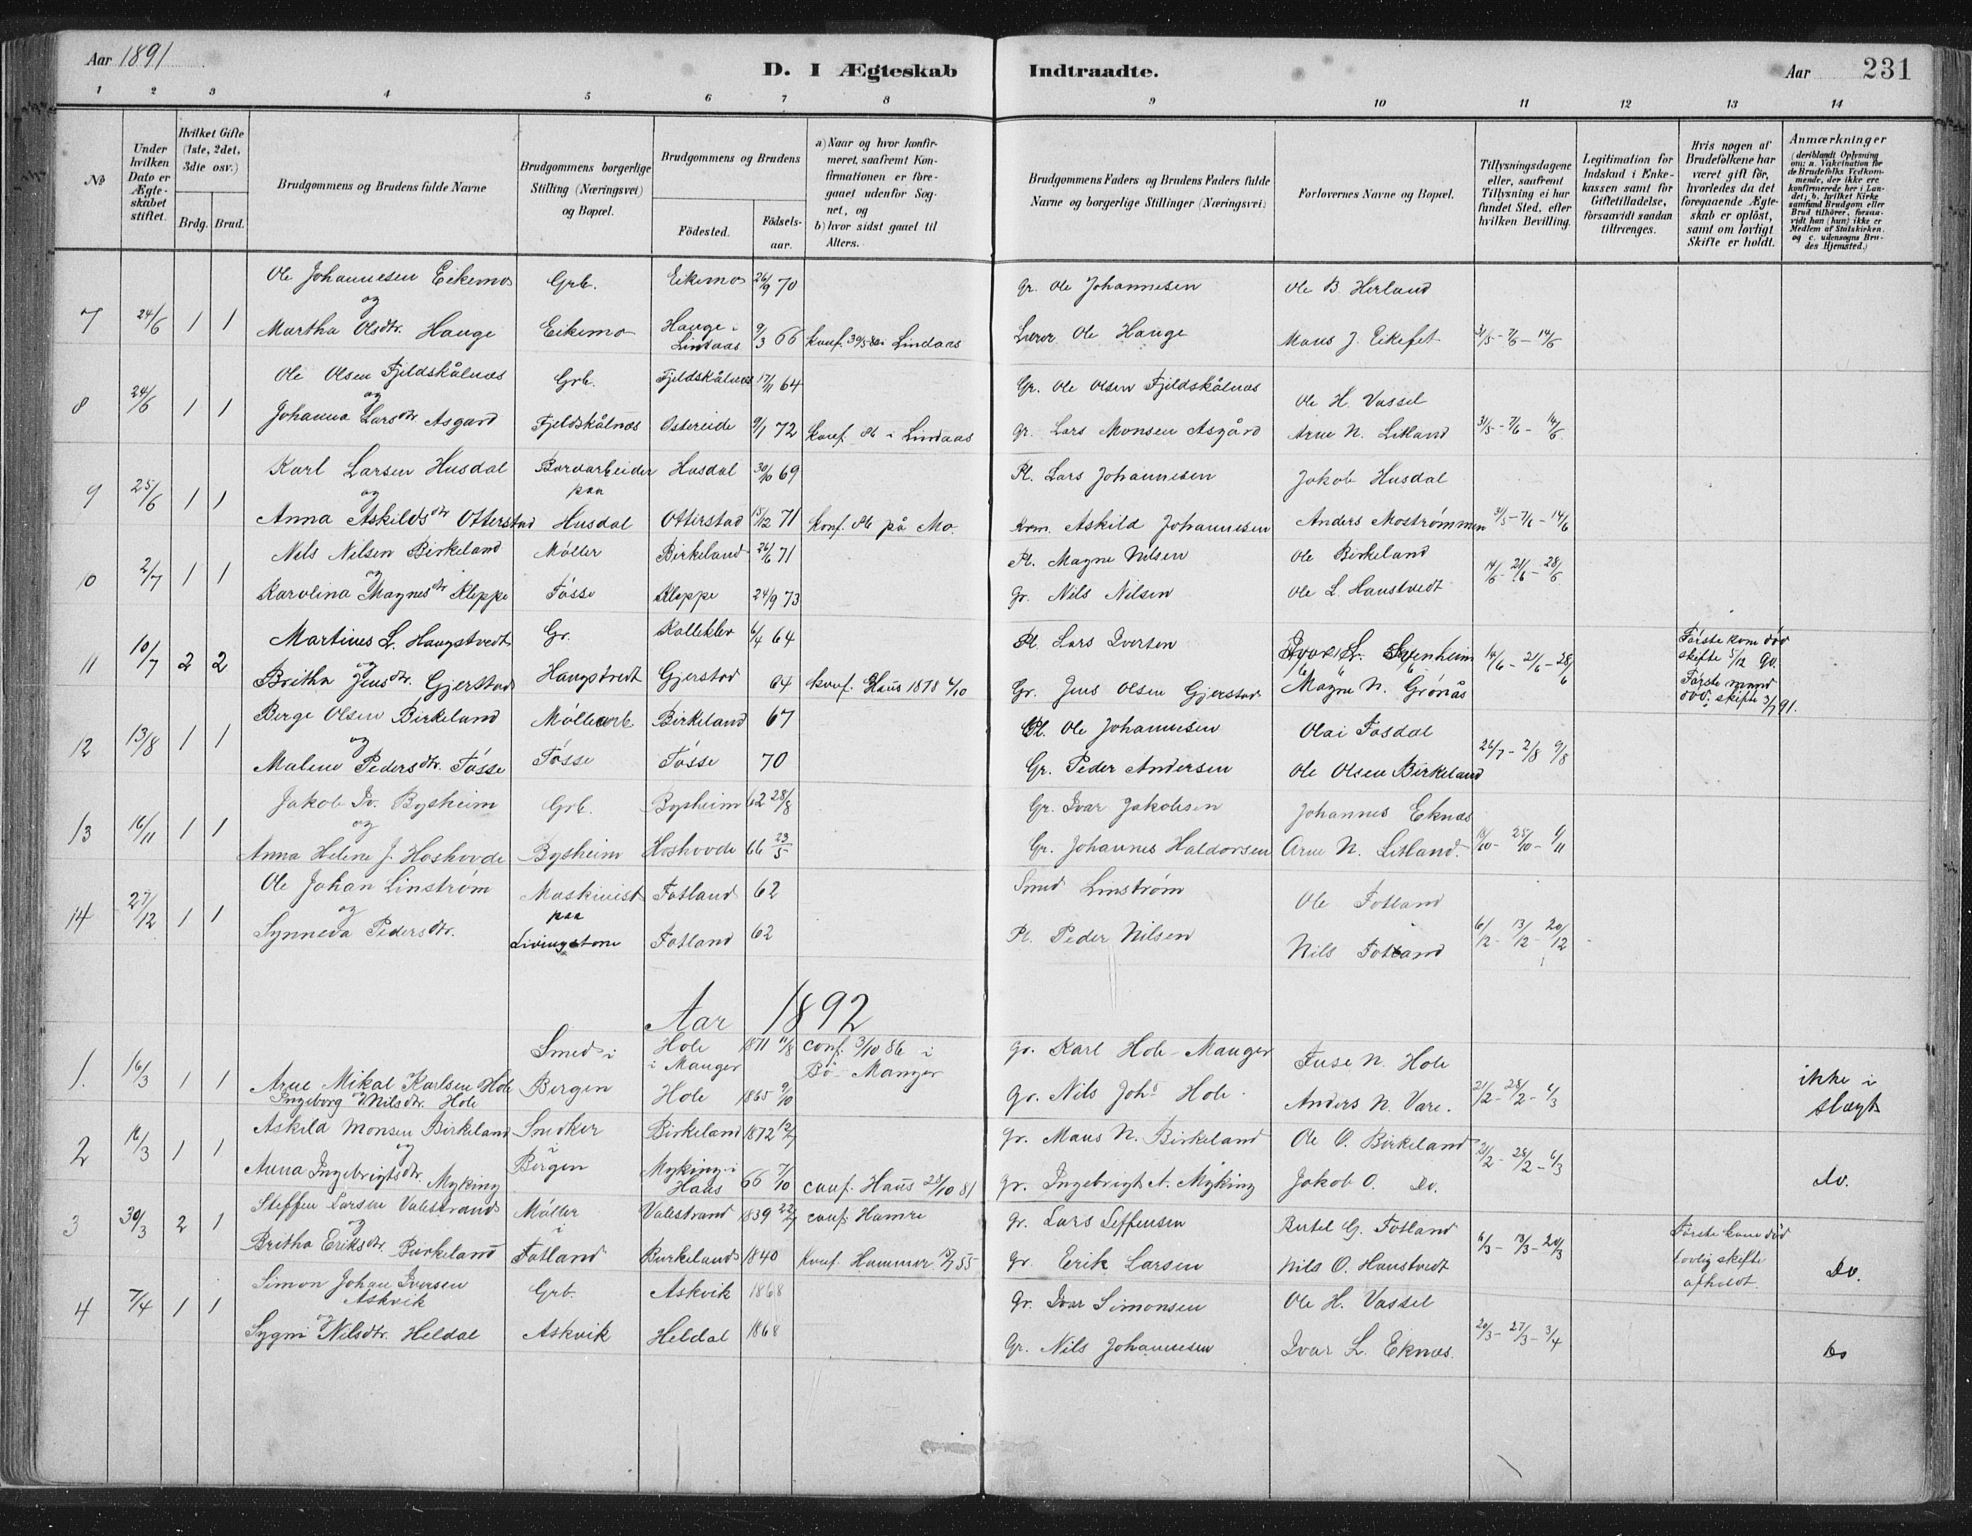 Aar 1891
D. I Ægteskab Indtraadte.
Aar 231
1 2 3 4 5 6 7 8 9 10 11 12 13 14
No
Under hvilken Dato er Ægteskabet stiftet.
Hvilket Gifte (1ste, 2det, 3die osv.)
Brdg. Brud.
Brudgommens og Brudens fulde Navne
Brudgommens borgerlige Stilling (Næringsvei) og Bopæl.
Brudgommens og Brudens
Fødested.
Fødselsaar.
a) Naar og hvor konfirmeret, saafremt Konfirmationen er foregaaet udenfor Sognet, og
b) hvor sidst gaaet til Alters.
Brudgommens Faders og Brudens Faders fulde Navne og borgerlige Stillinger (Næringsvei)
Forlovernes Navne og Bopæl.
Tillysningsdagene eller, saafremt Tillysning ei har fundet Sted, efter hvilken Bevilling.
Legitimation for Indskud i Enkekassen samt for Giftetilladelse, forsaavidt saadan tiltrænges.
Hvis nogen af Brudefolkene har været gift før, hvorledes da det foregaaende Ægteskab er opløst, samt om lovligt Skifte er holdt.
Anmærkninger
(deriblandt Oplysning om: a. Vakcination for de Brudefolks Vedkommende, der ikke ere konfirmerede her i Landet; b. hvilket Kirkesamfund Brudgom eller Brud tilhører, forsaavidt han (hun) ikke er Medlem af Statskirken, og c. udensogns Brudes Hjemsted.)
Ole Johannesen Eikemo Grb. Eikemo 26/9 70 Gr. Ole Johannesen Ole B. Herland
7 24/6 1 1 og
Martha Olsdtr. Hauge Eikemo Hauge i Lindaas 9/3 66 konf. 30/5 80 i Lindaas Lærer Ole Hauge Mons J. Eikefet 31/5 - 7/6 - 14/6
Ole Olsen Fjeldskålnæs Grb. Fjeldskålnæs 17/11 64 Gr. Ole Olsen Fjeldskålnæs Ole H. Vassel
8 24/6 1 1 og
Johanna Larsdtr. Asgard Fjeldskålnæs Ostereide 9/1 72 konf. 86 i Lindaas Gr. Lars Monsen Asgård Arne N. Litland 31/5 - 7/6 - 14/6
Karl Larsen Husdal Husdal 30/10 69 Pl. Lars Johannesen Jakob Husdal
9 25/6 1 1 og paa
Anna Askildsdtr Otterstad Husdal Otterstad 15/12 71 konf. 86 på Mo. Askild Johannesen Anders Mostrømmen 31/5 - 7/6 - 14/6
Nels Nilsen Birkeland Møller Birkeland 26/6 71 Pl. Magne Nilsen Ole Birkeland
10 2/7 1 1 og 14/6 - 21/6 - 28/6
Karolina Magnesdtr Kleppe Fósse Kleppe 24/9 73 Gr. Nils Nilsen Ole L. Haustvedt
Martines L. Haugstvedt Gr. Kalleklev 6/4 64 Pl. Lars Iversen
11 10/7 2 2 og 14/6 - 21/6 - 28/6 Første kone død skifte 5/12 90.
Britha Jensdtr. Gjerstad Haugstvedt Gjerstad 64 konf. Haus 1878 6/10 Gr. Jens Olsen Gjerstad Magne N. Grønås Første mand død, skifte 3/7 91.
Berge Olsen Birkeland Birkeland 67 Pl. Ole Johannesen Olai Fosdal
12 13/8 1 1 og 26/7 - 2/8 9/8
Malene Pedersdtr. Fósse Fósse Fósse 70 Gr. Peder Andersen Ole Olsen Birkeland
Jakob Iv. Bysheim Grb. Bysheim 62 28/8 Gr. Ivar Jakobsen Johannes Eknæs
13 16/11 1 1 og
Anna Helene J. Hoshovde Bysheim Hoshovde 66 23/5 Gr. Johannes Haldorsen Arne N. Litland. 18/10 - 25/10 - 1/11
Ole Johan Linstrøm Maskinist Fotland 62 Smed Linstrøm Ole Fotland
14 27/12 1 1 og paa
Synneva Pedersdtr. Livingstone Fotland 62 Pl. Peder Nilsen Nils Fotland 6/12 - 13/12 - 20/12
Aar 1892
Smed i Hole i Manger 1871 11/8 conf. 3/10 86 i Bö Manger Gr. Karl Hole - Manger Fuse N. Hole
1. 16/3 1 1
Arne Mikal Karlsen Hole Bergen
Ingeborg Nilsdtr. Hole Hole 1865 9/10 Gr. Nils Johs Hole. Anders N. Vare. 21/2 - 28/2 - 6/3 ikke i slægt
Askild Monsen Birkeland Snedker Birkeland 1872 Gr. Mons N. Birkeland Ole O. Birkeland
2 16/3 1 1 og i 21/2 - 28/2 - 6/3
Anna Ingebrigtsdtr. Myking Bergen Myking i Haus 66 7/10 conf. Haus 23/10 81 Gr. Ingebrigt A. Myking Jakob O. Do. Do.
Steffen Larsen Valestrand Møller Valestrand 1839 conf. Hamre Gr. Lars Seffensen Bertel G. Fotland Første kone død
3 30/3 2 1 og i 6/3 - 13/3 - 20/3
Britha Eriksdtr. Birkeland Fotland Birkeland 1840 konf. Hammer 55 Gr. Erik Larsen Nils O. Haustvedt lovlig skifte afholdt. Do.
Simon Johan Iversen Askvik Grb. Askvik 1868 Gr. Ivar Simonsen Ole H. Vassel
4 7/4 1 1 og
Sygni Nilsdtr. Heldal Askvik Heldal 1868 Gr. Nils Johannesen Ivar L. Eknæs. 20/3 - 27/3 - 3/4 Do